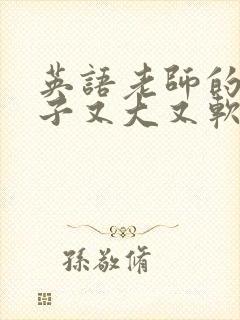 英語老師的
子又大又軟
孫敬脩